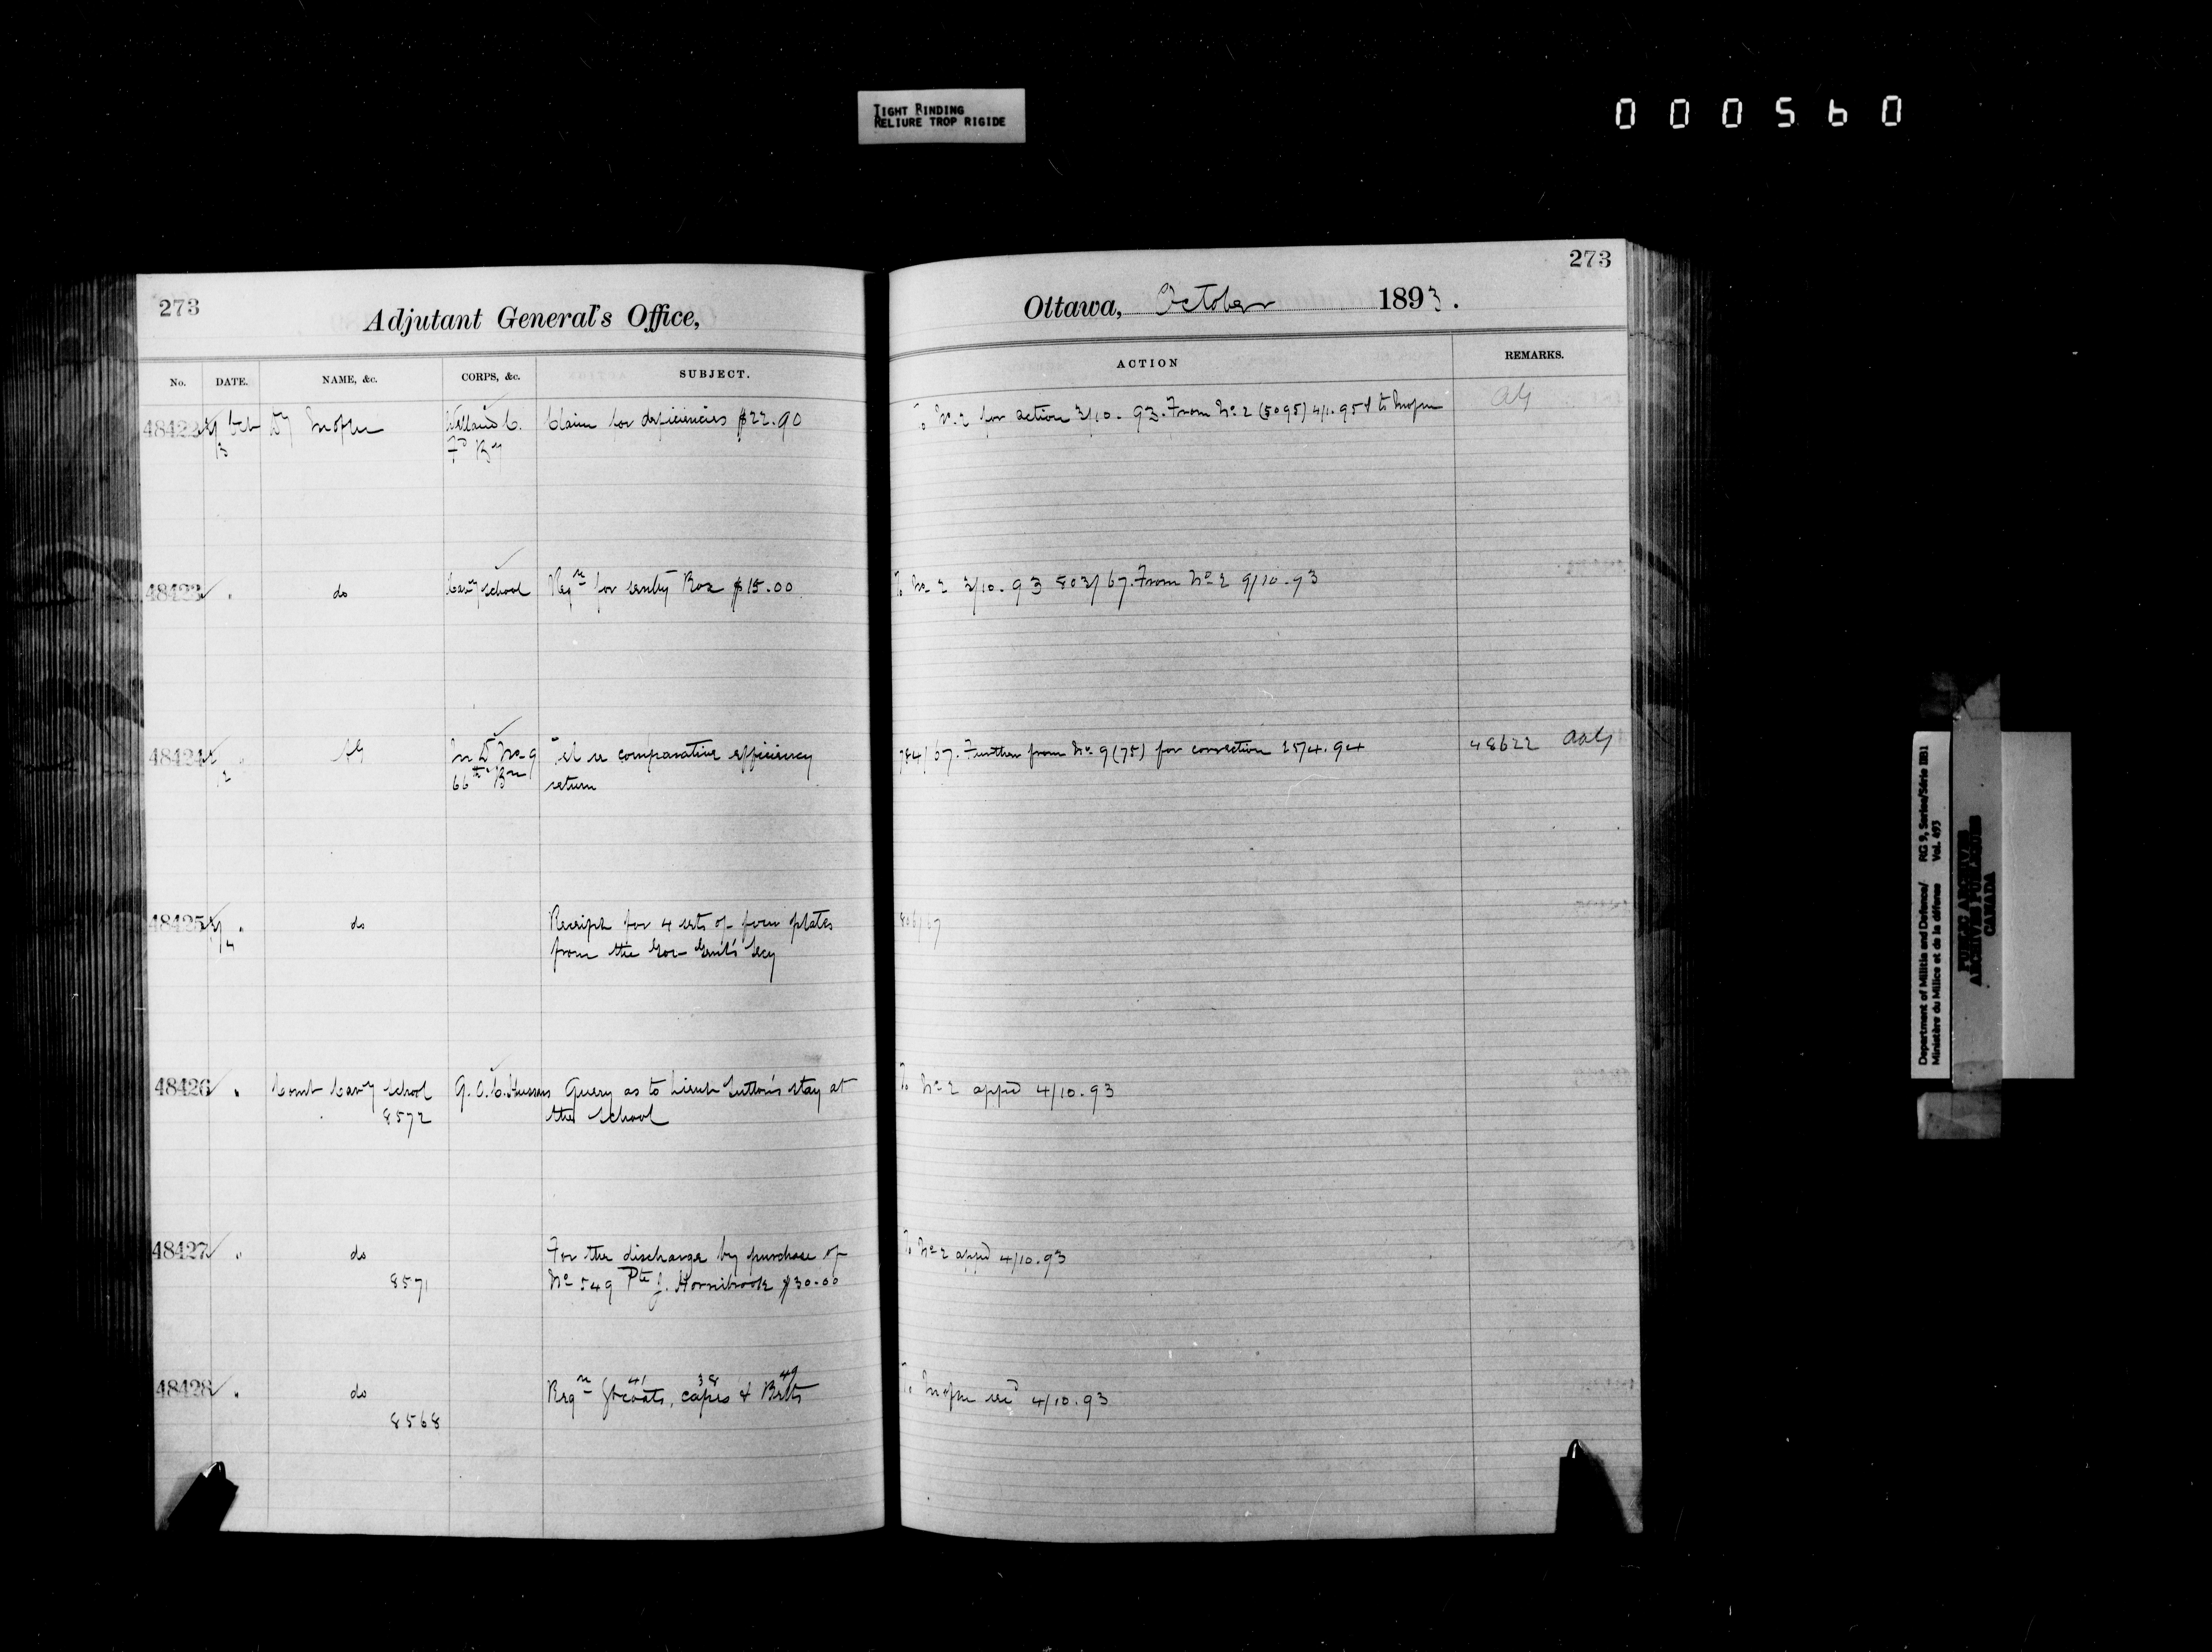 TIGHT BINDING
RELIURE TROP RIGIDE
000560
273
Adjutant General's Office,
No. DATE. NAME, &c. CORPS, &c. SUBJECT.
48422 Oct Claim for deficiencies $22.90
3 Fd By
48423 do Cavy School Reqn for sentry Box $15.00
48424 AG M D No 9 Tel re comparative efficiency
2 66th Bn return
48425 do Receipt for 4 sets of
4 from the Gov Genl's Secy
48426 Comt Cavy School G.G.B. Hussars Query as to Lieut Sutton's stay at
8572 the School
48427 do For the discharge by purchase of
8571 No 549 Pte J. Hornibrook $30.00
41 38 49
48428 do Reqn Gtcoats, capes & Belts
8568
273
Ottawa, October 1893.
ACTION REMARKS.
To No 2 for action 3/10.93. From No 2 (5095) to AG
To No 2 3/10.93 803/67. From No 2 9/10.93
784/67. Further from No 9 (75) for correction 25/4.94 48622 AAG
806/67
To No 2 appd 4/10.93
To No 2 appd 4/10.93
To 4/10.93
Department of Militia and Defence/ RG 9, Series/Série IIB1
Ministère du Milice et de la défense Vol. 493
PUBLIC ARCHIVES
ARCHIVES PUBLIQUES
CANADA